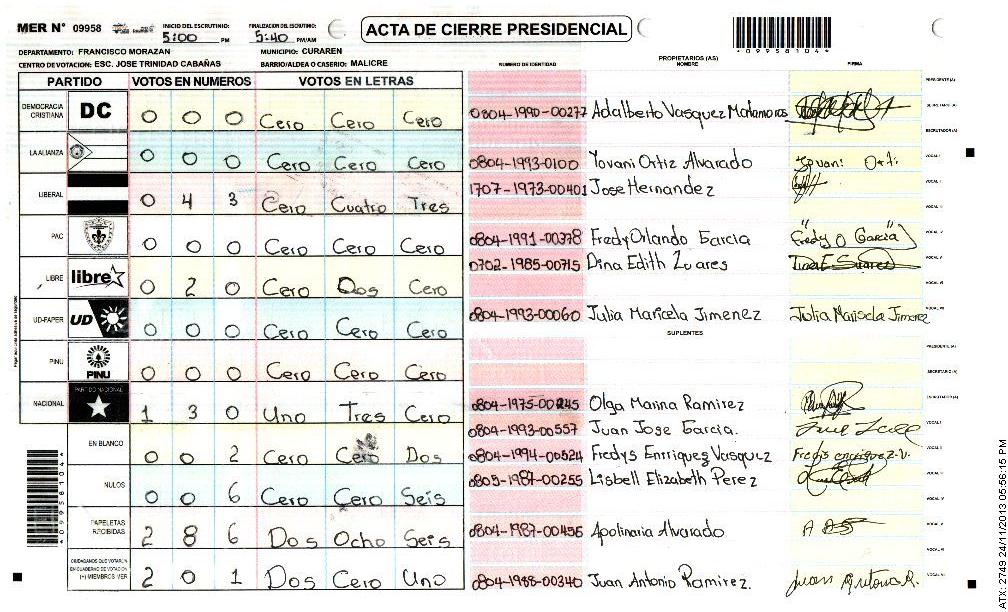 MER N° 09958
INICIO DEL ESCRUTINIO: 5:00 PM
FINALIZACION DEL ESCRUTINIO: 5:40 PM/AM
ACTA DE CIERRE PRESIDENCIAL
*09958104*
DEPARTAMENTO: FRANCISCO MORAZAN
MUNICIPIO: CURAREN
CENTRO DE VOTACION: ESC. JOSE TRINIDAD CABAÑAS
BARRIO/ALDEA O CASERIO: MALICRE
NUMERO DE IDENTIDAD
PROPIETARIOS (AS)
NOMBRE
FIRMA
PARTIDO VOTOS EN NUMEROS VOTOS EN LETRAS
DEMOCRACIA CRISTIANA DC 0 0 0 Cero Cero Cero
LA ALIANZA 0 0 0 Cero Cero Cero
LIBERAL 0 4 3 Cero Cuatro Tres
PAC 0 0 0 Cero Cero Cero
LIBRE libre 0 2 0 Cero Dos Cero
UD-FAPER UD 0 0 0 Cero Cero Cero
PINU PINU 0 0 0 Cero Cero Cero
NACIONAL PARTIDO NACIONAL 1 3 0 Uno Tres Cero
EN BLANCO 0 0 2 Cero Cero Dos
NULOS 0 0 6 Cero Cero Seis
PAPELETAS RECIBIDAS 2 8 6 Dos Ocho Seis
CIUDADANOS QUE VOTARON EN CUADERNO DE VOTACION (+) MIEMBROS MER 2 0 1 Dos Cero Uno
PRESIDENTE (A)
0804-1990-00277 Adalberto Vasquez Matamoros SECRETARIO (A)
ESCRUTADOR (A)
0804-1993-0100 Yovani Ortiz Alvarado Yovani Orti VOCAL I
1707-1973-00401 Jose Hernandez
0804-1991-00378 Fredy Orlando Garcia "Fredy O Garcia"
0702-1985-00715 Dina Edith Zuares
0804-1993-00060 Julia Maricela Jimenez Julia Marisela Jimenez
SUPLENTES
PRESIDENTE (A)
SECRETARIO (A)
0804-1975-00245 Olga Marina Ramirez ESCRUTADOR (A)
0804-1993-00557 Juan Jose Garcia. VOCAL I
0804-1994-00524 Fredys Enrriquez Vasquez Fredis enrriquez V.
0805-1987-00255 Lisbell Elizabeth Perez
0804-1987-00456 Apolinaria Alvarado
0804-1988-00340 Juan Antonio Ramirez. Juan Antonio R.
*09958104*
ATX 2749 24/11/2013 05:56:15 PM